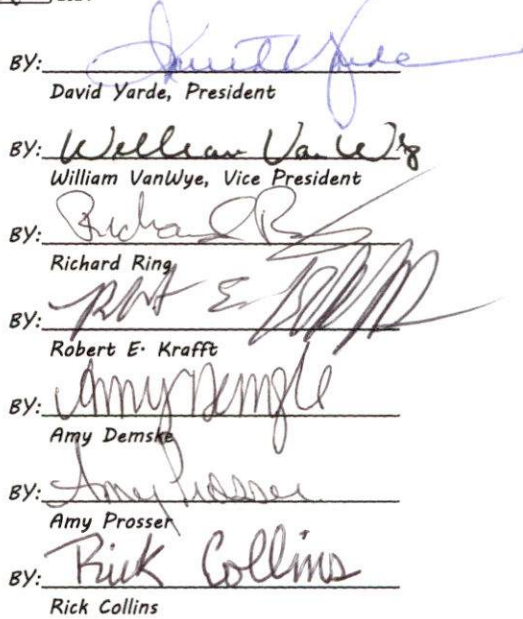 BY: David Yarde
David Yarde, President
BY: William VanWye
William VanWye, Vice President
BY: Richard R
Richard Ring
BY: Robt E
Robert E. Krafft
BY: Amy Demske
Amy Demske
BY: Amy Prosser
Amy Prosser
BY: Rick Collins
Rick Collins